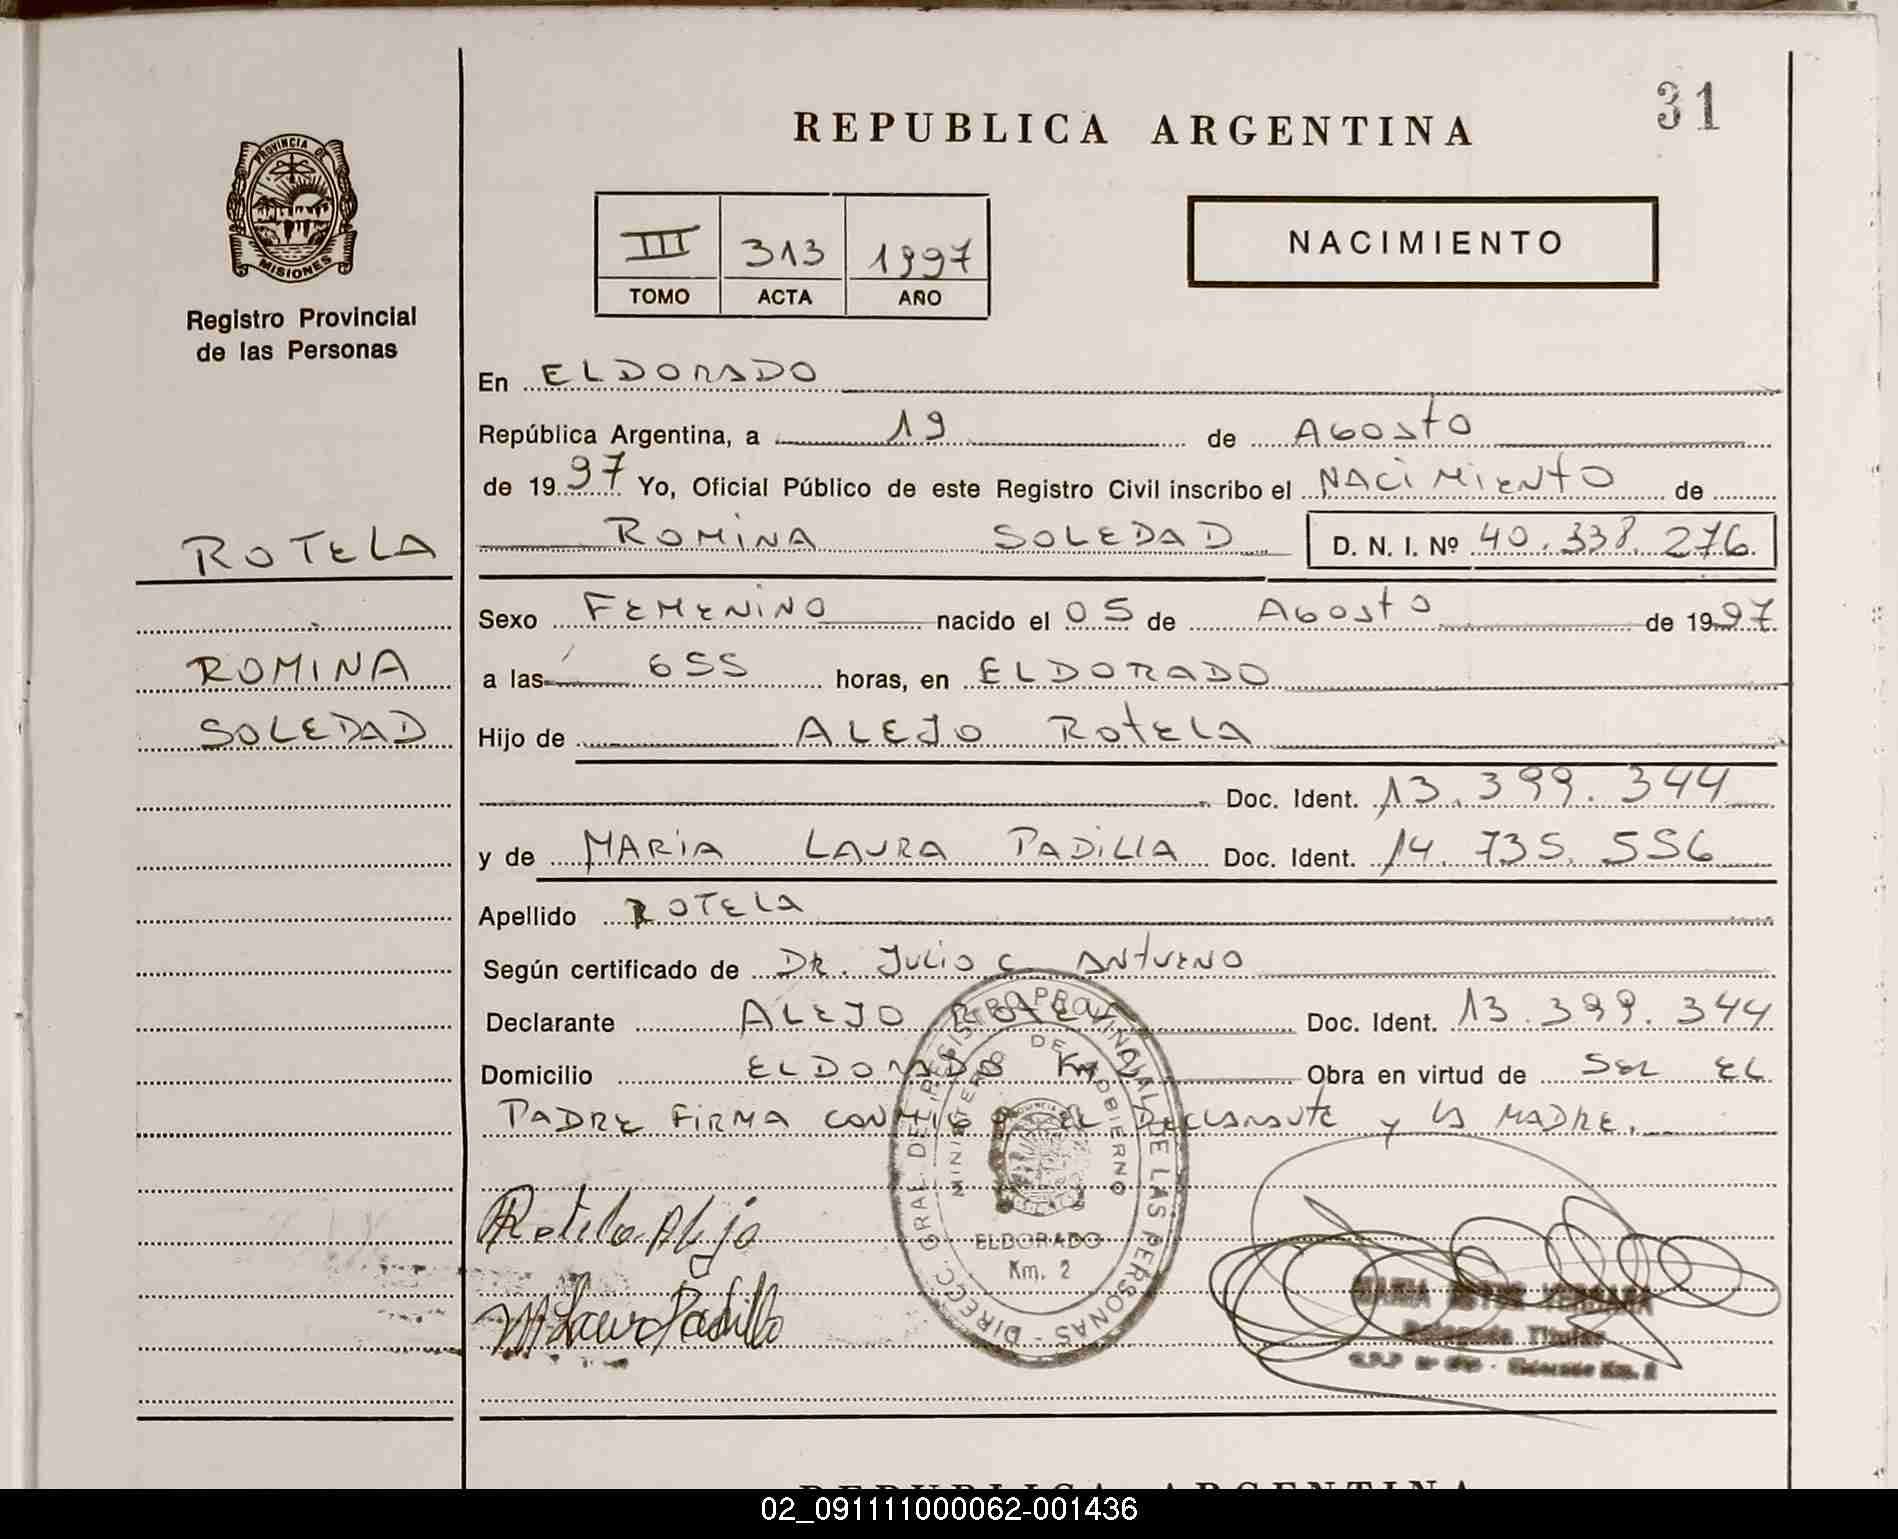 31
REPUBLICA ARGENTINA
PROVINCIA DE
MISIONES
Registro Provincial
de las Personas
III 313 1997
TOMO ACTA AÑO
NACIMIENTO
En ELDORADO
República Argentina, a 19 de AGOSTO
de 1997 Yo, Oficial Público de este Registro Civil inscribo el NACIMIENTO de
ROMINA SOLEDAD D. N. I. Nº 40.338.276
ROTELA
ROMINA
SOLEDAD
Sexo FEMENINO nacido el 05 de AGOSTO de 1997
a las 655 horas, en ELDORADO
Hijo de ALEJO ROTELA
Doc. Ident. 13.399.344
y de MARIA LAURA PADILLA Doc. Ident. 14.735.556
Apellido ROTELA
Según certificado de DR. JULIO C ANTUENO
Declarante ALEJO ROTELA Doc. Ident. 13.399.344
Domicilio ELDORADO Obra en virtud de SER EL
PADRE FIRMA CONMIGO EL DECLARANTE Y LA MADRE.
Rotela Alejo
M Laura Padilla
DIREC. GRAL. DEL REGISTRO PROVINCIAL DE LAS PERSONAS -
MINISTERIO DE GOBIERNO
ELDORADO
Km. 2
Delegada Titular
Eldorado Km. 2
REPUBLICA ARGENTINA
02_091111000062-001436